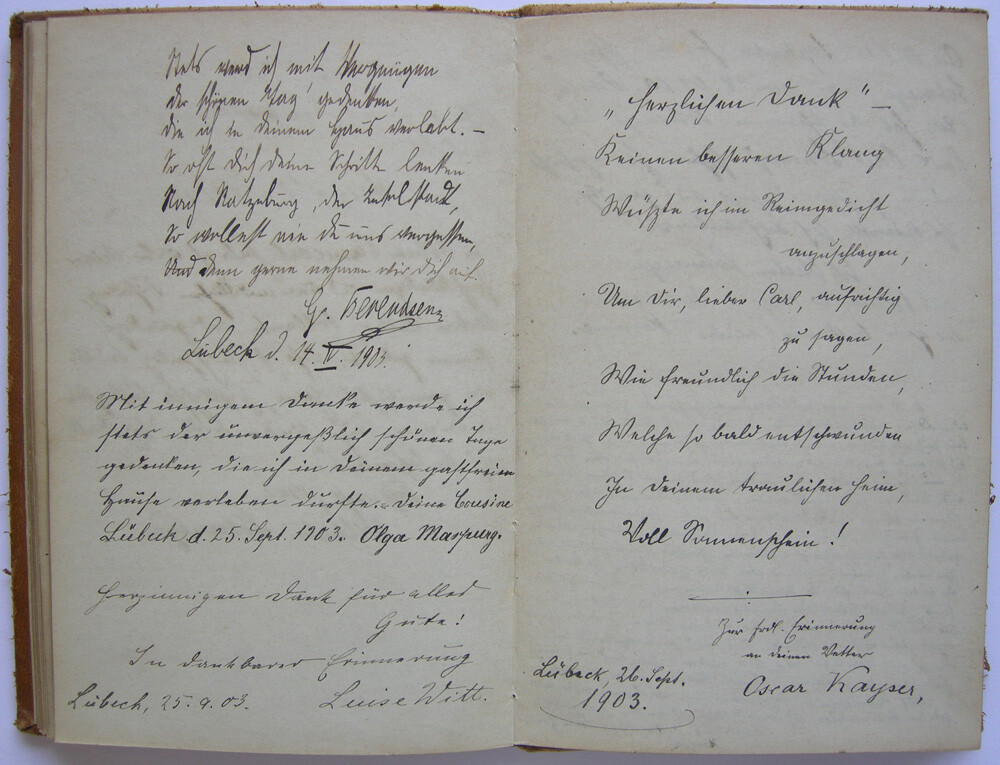 Stets werd ich mit Vergnügen
der schönen Tag' gedenken,
die ich in deinem Haus verlebt. –
So oft dich deine Schritte lenken
Nach Ratzeburg, der Inselstadt,
So wollest nie du uns vergessen,
Und denn gerne nehmen wir dich auf.
G. Berendsen
Lübeck d. 14. IV. 1903.
Mit innigem Danke werde ich
stets der unvergeßlich schönen Tage
gedenken, die ich in Deinem gastfreien
Hause verleben durfte. – Deine Cousine
Lübeck d. 25. Sept. 1903. Olga
Herzinnigen Dank für alles
Gute!
In dankbarer Erinnerung
Lübeck, 25.9.03. Luise Witt.
„Herzlichen Dank" –
Keinen besseren Klang
Wüszte ich im Reimgedicht
anzuschlagen,
Um Dir, lieber Carl, aufrichtig
zu sagen,
Wie freundlich die Stunden,
Welche so bald entschwunden
In Deinem traulichen Heim,
Voll Sonnenschein!
Zur frdl. Erinnerung
an deinen Vetter
Oscar Kayser,
Lübeck, 26. Sept.
1903.